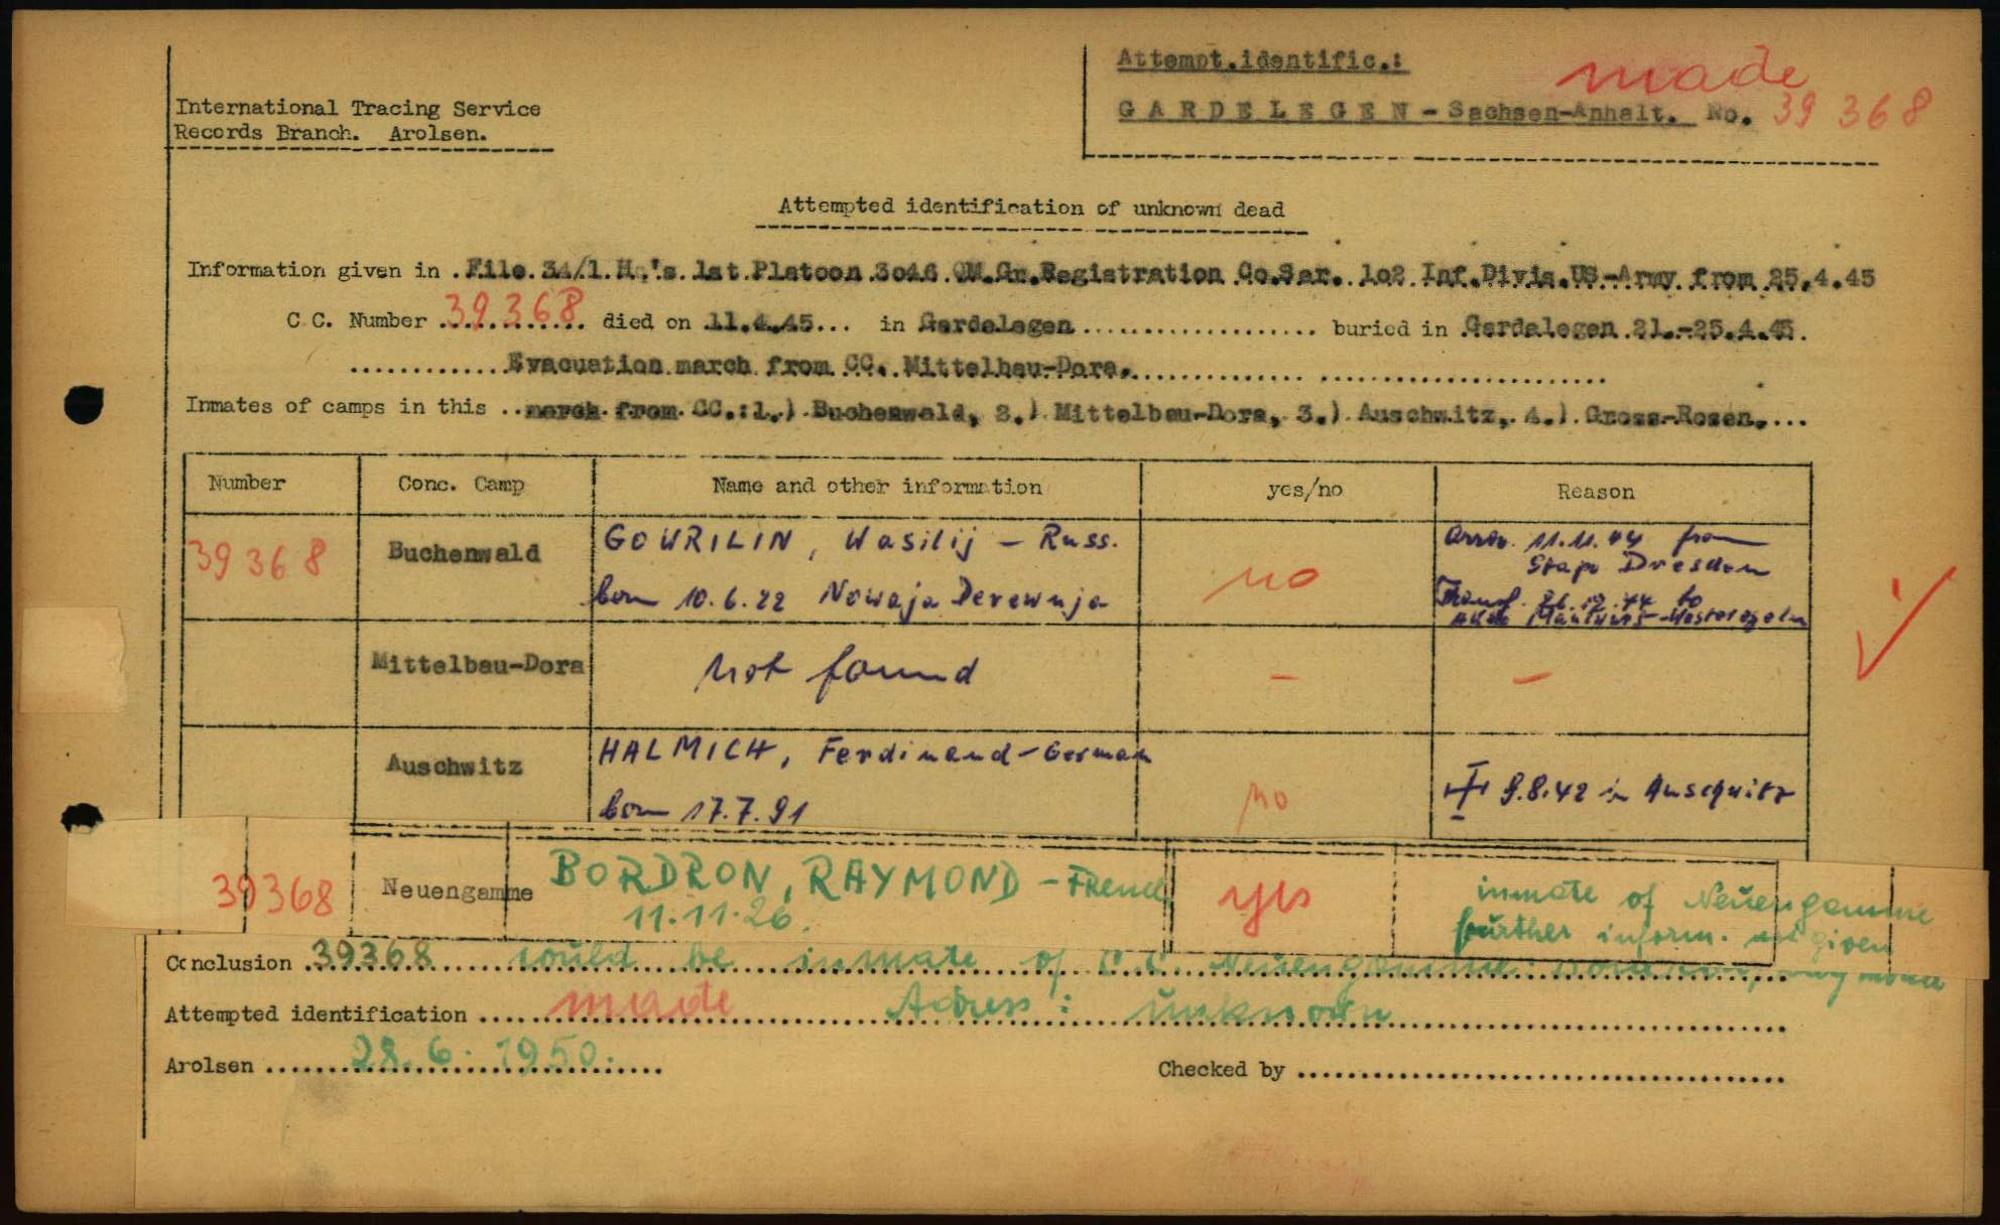 Attempt.identific.:
made
International Tracing Service
GARDELEGEN - Sachsen-Anhalt. No. 39 368
Records Branch. Arolsen.
Attempted identification of unknown dead
Information given in .File.34/1.Hq's.1st.Platoon.3046.QM.Gr.Registration Co.Ser. 102 Inf.Divis.US-Army from 25.4.45
C.C. Number 39368 died on 11.4.45... in Gardelegen buried in Gardelegen 21.-25.4.45.
Evacuation march from CC. Mittelbau-Dora.
Inmates of camps in this ..march from CC.:1.) Buchenwald, 2.) Mittelbau-Dora, 3.) Auschwitz, 4.) Gross-Rosen....
Number Conc. Camp Name and other information yes/no Reason
39368 Buchenwald GOWRILIN, Wasilij - Russ. no arriv. 11.11.44 from
Stapo Dresden
born 10.6.22 Nowaja Derewnja
Transf. 26.12.44 to
Mittelbau-Dora not found - -
Auschwitz HALMICH, Ferdinand - German no 9.8.42 in Auschwitz
born 17.7.91
39368 Neuengamme BORDRON, RAYMOND - French yes inmate of Neuengamme
11.11.26. further inform. not given
Conclusion 39368 could be inmate of C.C. Neuengamme
Attempted identification made Adress: unknown
Arolsen 28.6.1950. Checked by